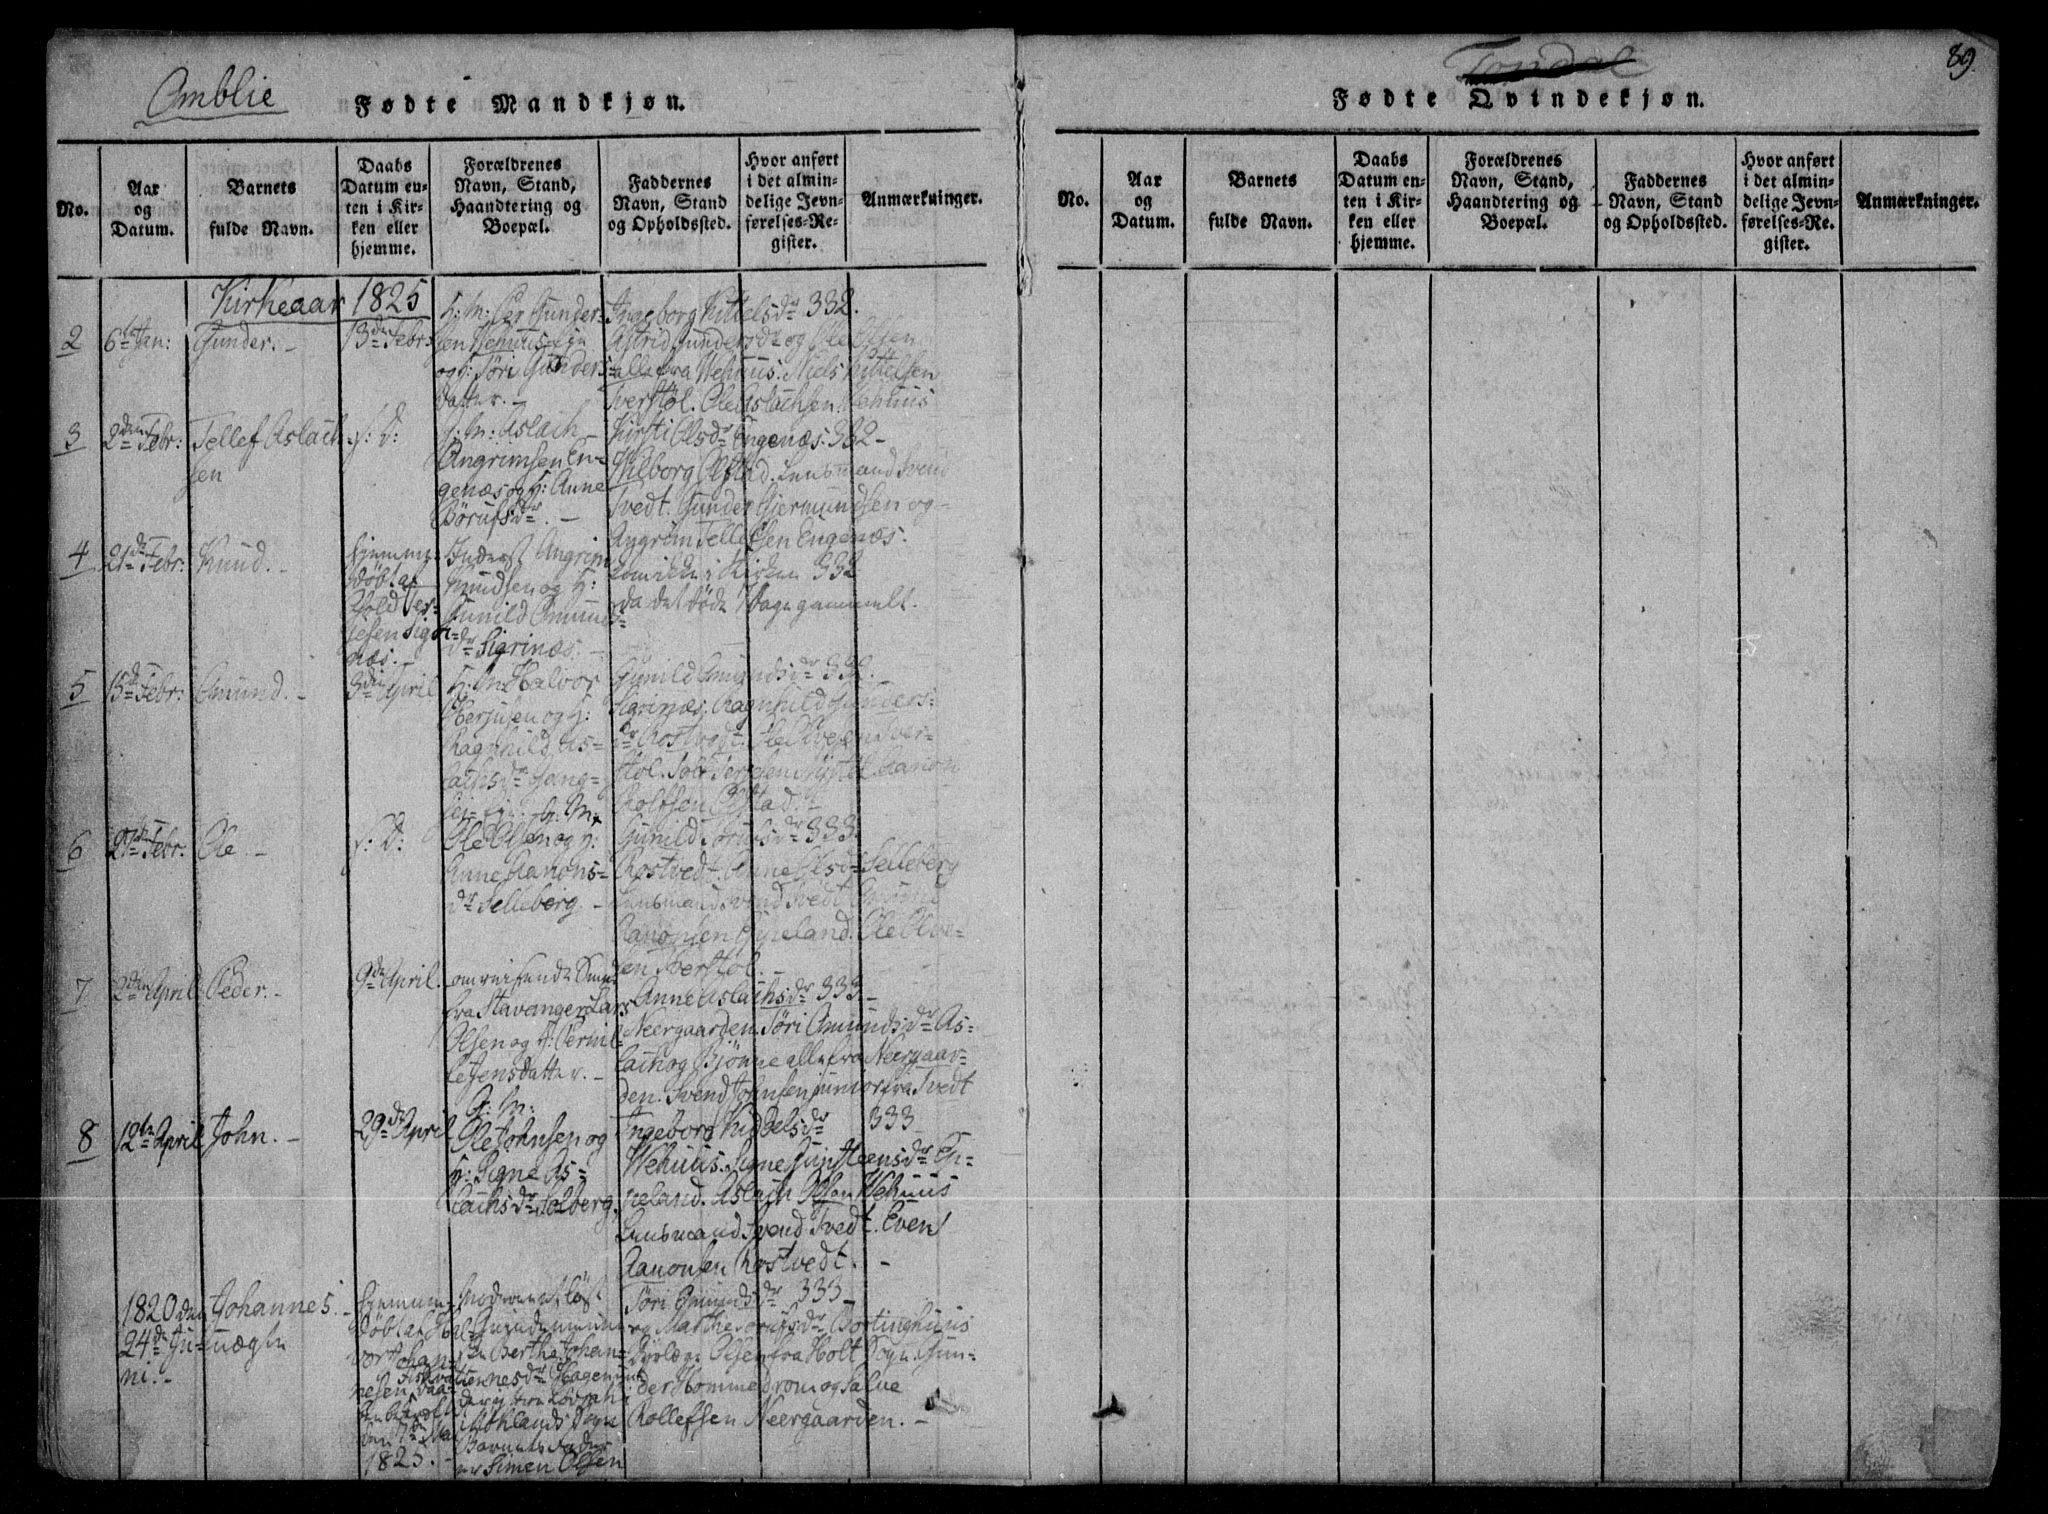 Omblie
Fødte Mandkjøn.
No.
Aar og Datum.
Barnets fulde Navn.
Daabs Datum enten i Kirken eller hjemme.
Forældrenes Navn, Stand, Haandtering og Boepæl.
Faddernes Navn, Stand og Opholdssted.
Hvor anført i det almindelige Jevnførelses-Register.
Anmærkninger.
Kirkeaar 1825
2
6te Jan:
Gunder. -
13de Febr:
G: M: Per Gunder=
sen Wehuus
og H: Töri Gunders=
datter. -
Ingeborg Kittelsdr 332.
Astrid Gundersdr og Ole Olsen
alle fra Wehuus. Niels Kittelsen
Sverstøl. Ole Aslachsen Wehuus
3
2den Febr:
Tellef Aslach
sen
s: D:
G: M: Aslach
Angrimsen En=
genæs og H: Anne
Börufsdr. -
Kirsti Olsdr Engenæs. 332 -
Wilborg Ofstad. Lensmand Svend
Tvedt. Gunder Gjermundsen og -
Angrim Tellefsen Engenæs.
4
21de Febr:
Knud. -
Hjemme=
døbt af
Tjold Ter=
jesen Sigri=
næs. -
Inderst Angrim
Knudsen og H:
Gunild Omunds=
dr Sigrinæs. -
kom ikke i Kirken 332
da det døde 7 Dage gammelt.
5
15de Febr:
Omund. -
3die April
G: M: Halvor
Herjusen og H:
Ragnhild As=
lachsdr
Gunild Omundsdr 332. -
Sigrinæs. Ragnhild Gunders=
dr Rostvedt. Ole Olvesen Sver=
støl. Aanon
Rolfsen Ofstad. -
6
27de Febr:
Ole. -
s: D:
G: M:
Ole Olsen og H:
Anne Aanons=
dr Selleberg. -
Gunild Börufsdr 333.
Rostvedt. Anne Olsdr Selleberg
Lensmand Svend Tvedt. Omund
Aanonsen Espeland. Ole Olve=
sen Sverstøl. -
7
2den April
Peder. -
9de April.
omreisende
fra Stavanger Lars
Olsen og H: Pernil=
le Jensdatter. -
Anne Aslachsdr 333. -
Neergaarden. Töri Omundsdr As=
lach og Bjönne alle fra Neergaar=
den. Svend Johnsen junior fra Tvedt
8
12te April
John. -
29de April
G: M:
Ole Johnsen og
H: Signe As=
lachsdr Solberg.
Ingeborg Kiddelsdr 333
Wehuus. Signe Gunsteensdr Es=
peland. Aslach Olsen Wehuus
Lensmand Svend Tvedt. Even
Aanonsen Rostvedt. -
1820 den
24de Ju=
ni. -
Johannes. -
uægte
Hjemme=
døbt af Hal=
vor Johan=
nesen
1825. -
Bertha Johan=
nesdr
Barnets Fader
er Simen Olsen
Töri Omundsdr 333 -
og Marthe Börufsdr Bortinghuus
Olsen fra Holt Sogn. Gun=
der Hommedrom og Salve
Rollefsen Neergaarden. -
Tovdal
89.
Fødte Qvindekjøn.
No.
Aar og Datum.
Barnets fulde Navn.
Daabs Datum enten i Kirken eller hjemme.
Forældrenes Navn, Stand, Haandtering og Boepæl.
Faddernes Navn, Stand og Opholdssted.
Hvor anført i det almindelige Jevnførelses-Register.
Anmærkninger.